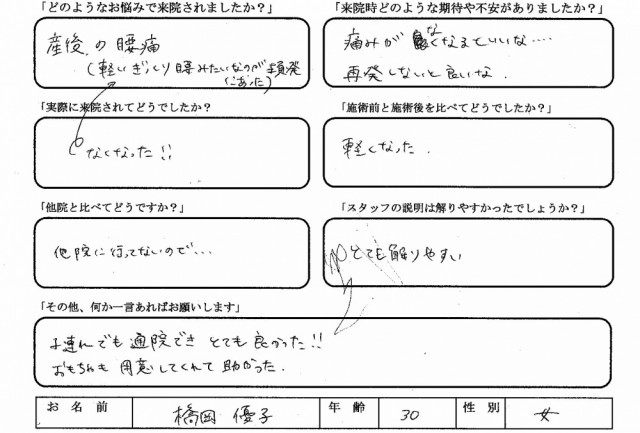 「どのようなお悩みで来院されましたか?」
産後の腰痛
(軽いぎっくり腰みたいなのが頻発
にあった)
「来院時どのような期待や不安がありましたか?」
痛みがなくなるといいな….
再発しないと良いな.
「実際に来院されてどうでしたか?」
なくなった!!
「施術前と施術後を比べてどうでしたか?」
軽くなった.
「他院と比べてどうですか?」
他院に行ってないので…
「スタッフの説明は解りやすかったでしょうか?」
とても解りやすい
「その他、何か一言あればお願いします」
子連れでも通院でき とても良かった!!
おもちゃも用意してくれて助かった.
お名前 橋岡 優子 年齢 30 性別 女